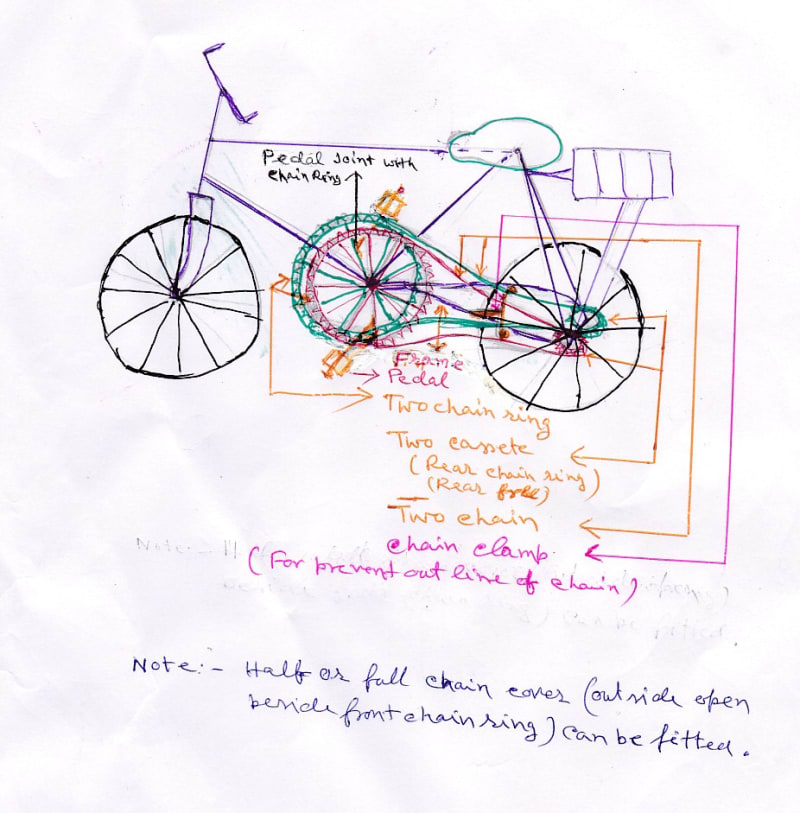 Pedal Joint with
chain Ring
Frame
Pedal
Two chain ring
Two cassete
(Rear chain ring)
(Rear
Two chain
chain clamp
(For prevent out line of chain)
Note:- Half or full chain cover (outside open
beside front chain ring) can be fitted.